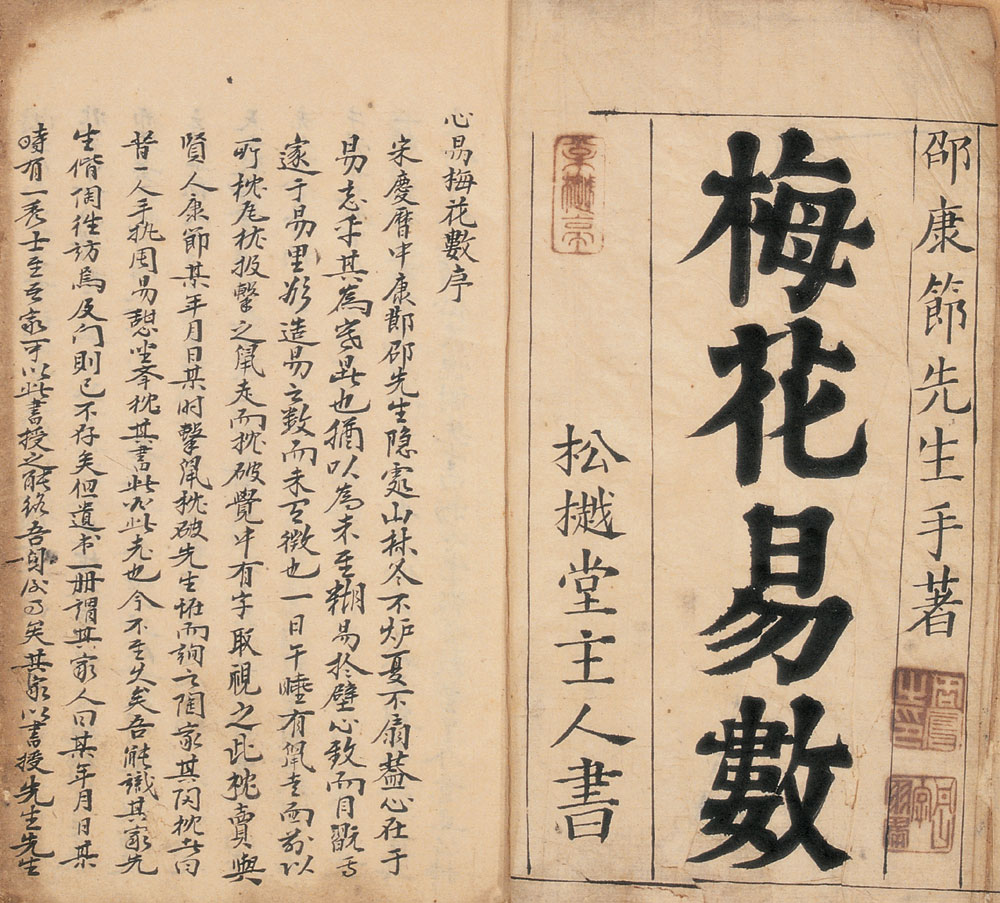 邵康節先生手著
梅花易數
松樾堂主人書
心易梅花數序
宋慶曆中康節邵先生隱處山林冬不炉夏不扇蓋心在于
易忘乎其為寒暑也猶以為未至糊易於壁心致而目翫焉
邃于易里欲造易之數而未有徵也一日午睡有鼠走而前以
所枕瓦枕投擊之鼠走而枕破覺中有字取視之此枕賣與
賢人康節某年月日某时擊鼠枕破先生怪而詢之陶家其陶枕者曰
昔一人手执周易憩坐舉枕其書此必此老也今不至久矣吾能識其家先
生偕陶往訪焉及门則已不存矣但遺书一册謂其家人曰某年月日某
時有一秀士至吾家可以此書授之能終吾身后事矣其家以書授先生先生